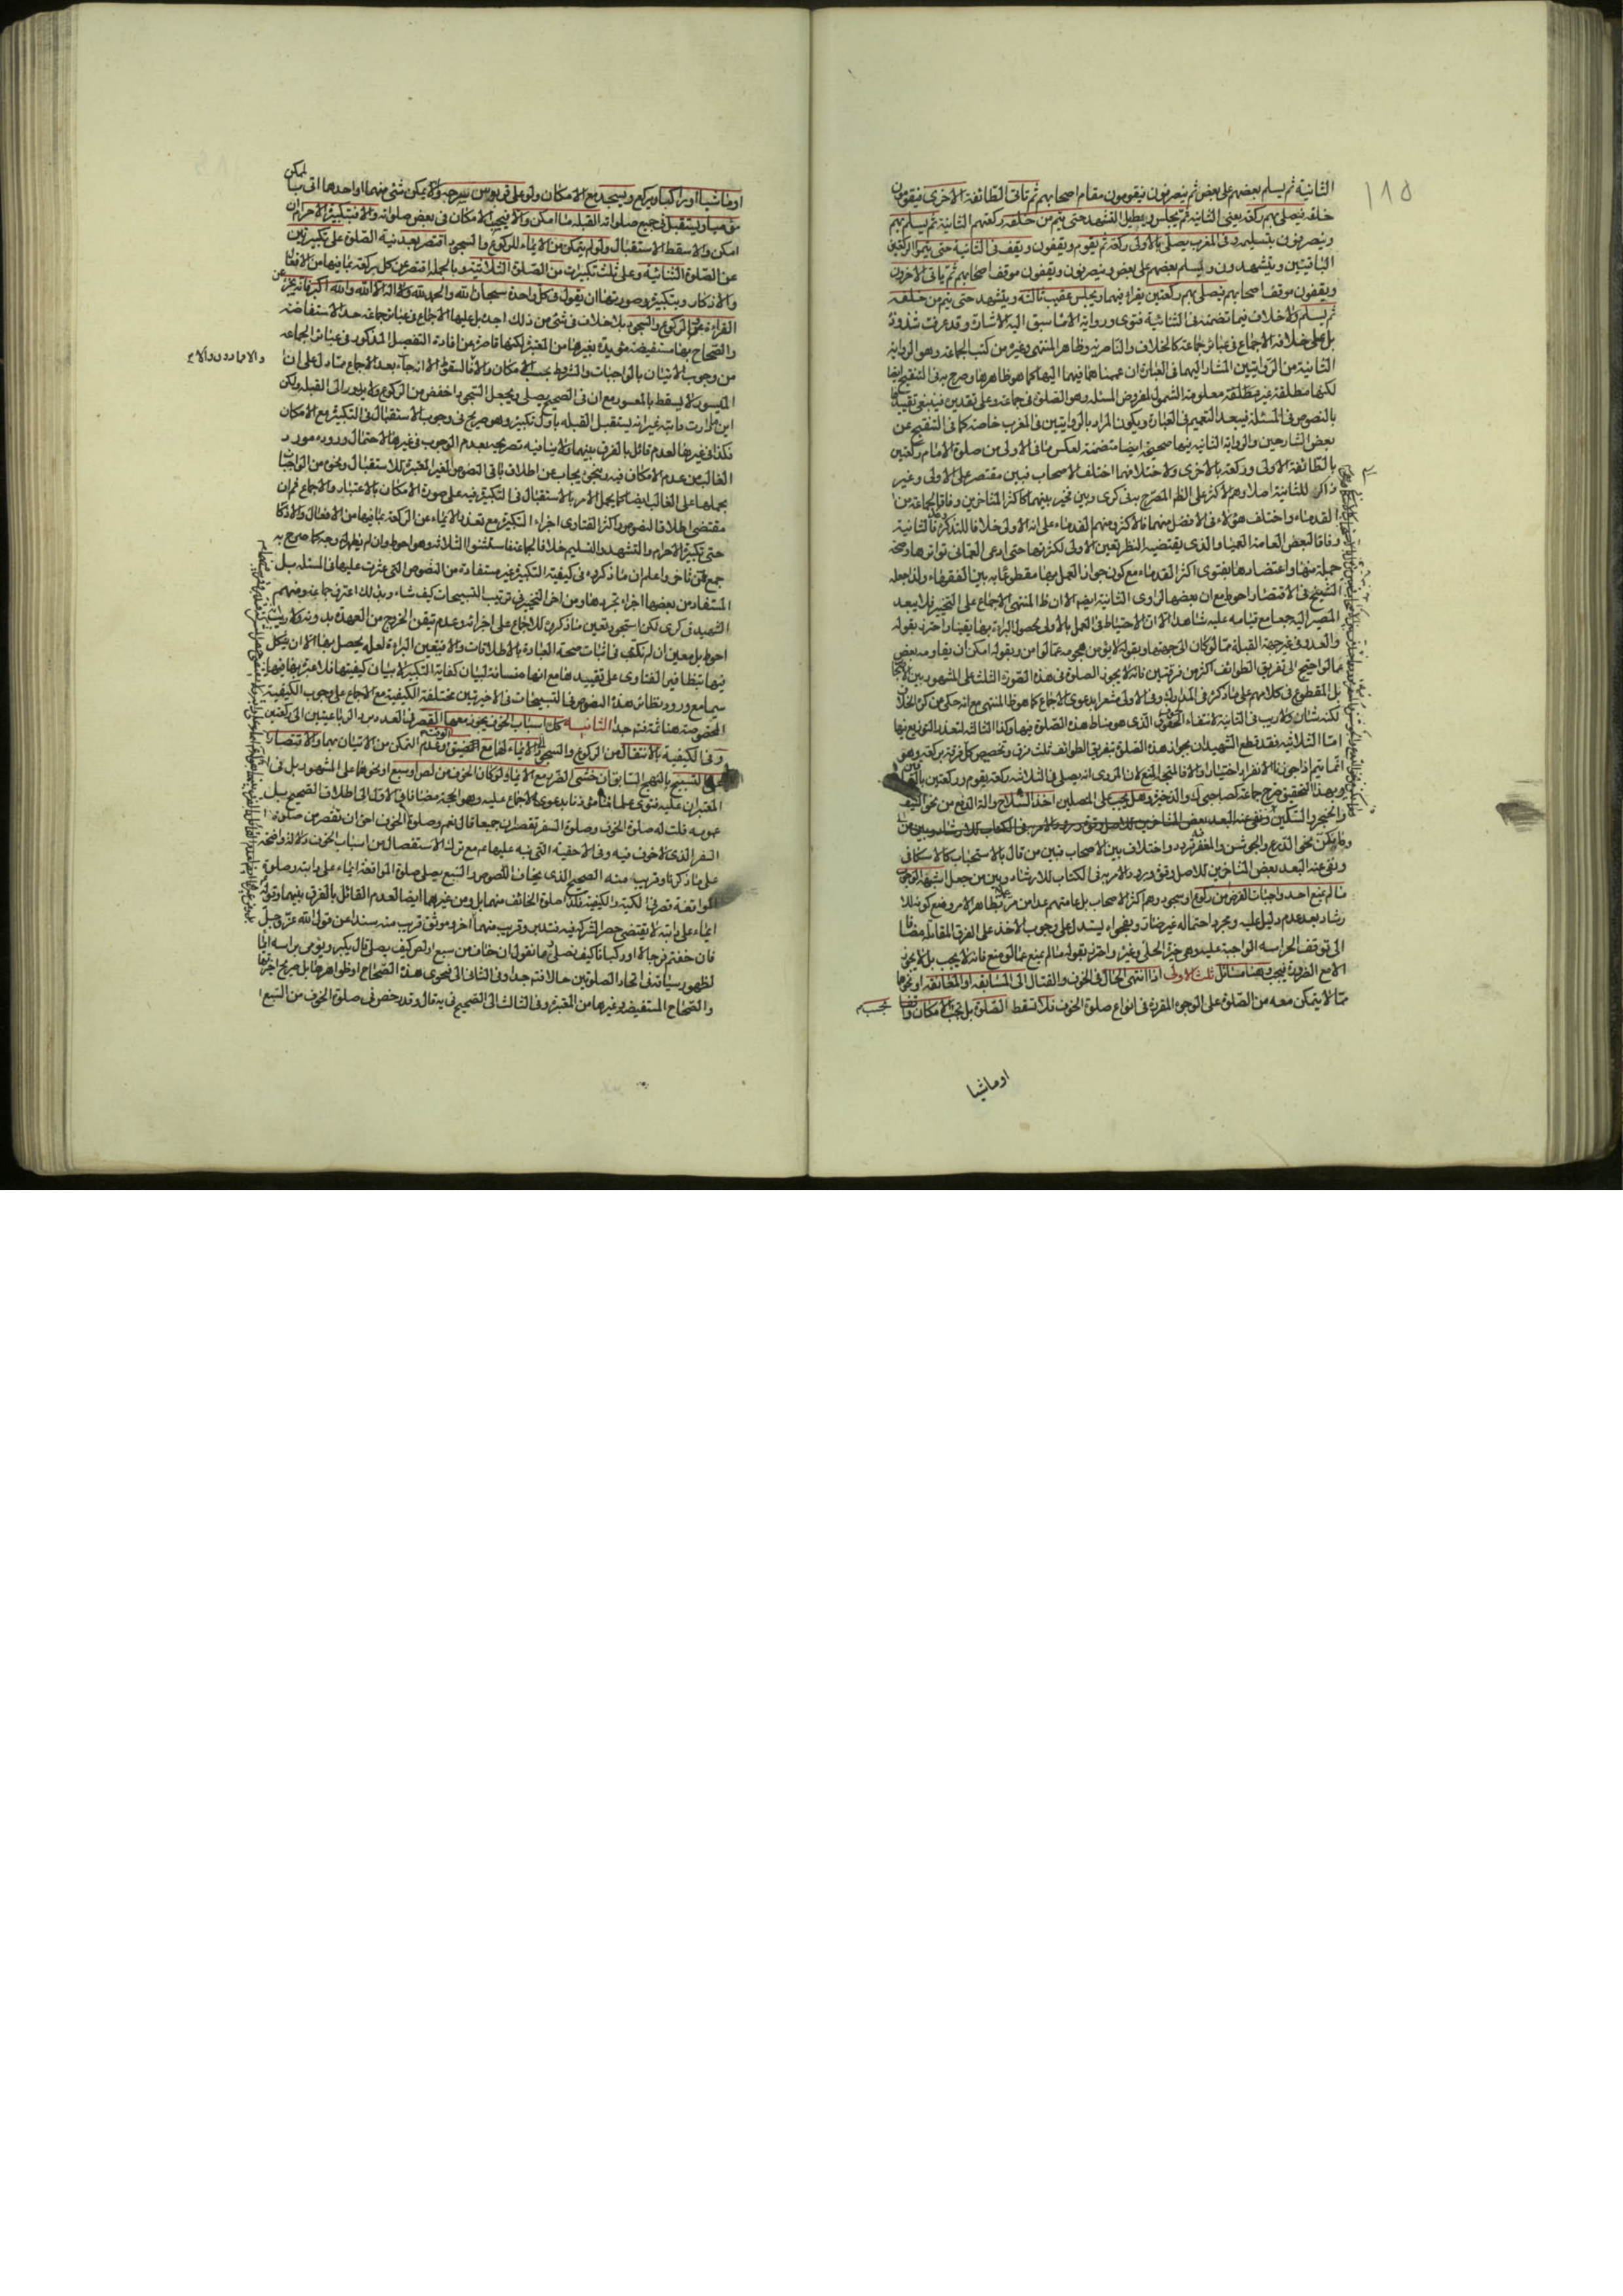 ١١٥
الثانية ثم يسلم بعضهم على بعض ثم ينصرفون فيقومون مقام اصحابهم ثم تاتى الطائفة الاخرى فيقومون
خلفه فيصلى بهم ركعة يعنى الثانية ثم يجلس ويطيل التشهد حتى يتم من خلفه ركعتهم الثانية ثم يسلم بهم
وينصرفون بتسليمه وفى المغرب يصلى بالاولى ركعة ثم يقوم ويقفون ويقف فى الثانية حتى يتموا الركعتين
الباقيتين ويتشهدون ويسلم بعضهم على بعض وينصرفون ويقفون موقف اصحابهم ثم ياتى الاخرون
ويقفون موقف اصحابهم فيصلى بهم ركعتين يقراء فيهما ويجلس عقيب ثالثة ويتشهد حتى يتم من خلفه
ثم يسلم ولا خلاف فيما تضمنه فى الثنائية فتوى ورواية الا ما سبق اليه الاشارة وقد عرفت شذوذه
بل على خلافه الاجماع فى عبائر جماعة كالخلاف والناصرية وظاهر المنتهى وغيره من كتب الجماعة وهو الرواية
الثانية من الروايتين المشار اليهما فى العبارة ان عممناهما فيهما اليها كما هو ظاهرها وصرح به فى التنقيح ايضا
لكنها مطلقة غير معلومة الشمول لمفروض المسئلة وهو الصلوة فى جماعة وعلى تقديره فينبغى تقييدها
بالنصوص فى المسئلة فيبعد التعميم فى العبارة ويكون المراد بالروايتين فى المغرب خاصة كما فى التنقيح عن
بعض الشارحين والرواية الثانية فيها صحيحة ايضا متضمنة لعكس ما فى الاولى من صلوة الامام ركعتين
بالطائفة الاولى وركعة بالاخرى ولاختلافهما اختلف الاصحاب فبين مقتصر على الاولى وغير
ذاكر للثانية اصلا وهم الاكثر على الظاهر المصرح به فى كرى وبين مخير بينهما كاكثر المتاخرين وفاقا لجماعة من
القدماء واختلف هؤلاء فى الافضل منهما فالاكثر ومنهم القدماء على انه الاولى خلافا للتذكرة فالثانية
وفاقا لبعض العامة العمياء والذى يقتضيه النظر تعين الاولى لكثرتها حتى ادعى العمانى تواترها وصحة
جملة منها واعتضادها بفتوى اكثر القدماء مع كون جواز العمل بها مقطوعا به بين الفقهاء ولذا جعله
الشيخ فى الاقتصار احوط مع ان بعضها لراوى الثانية ايضا الا ان ظاهر المنتهى الاجماع على التخيير فلا يبعد
المصير اليه جمعا مع قيامه عليه شاهدا الا ان الاحتياط فى العمل بالاولى لحصول البراءة بها يقينا واحترز بقوله
والعدو فى غير جهة القبلة عما لو كان الى جهتها وبقوله لا يؤمن هجومه عما لو امن وبقوله امكن ان يقاومه بعض
عما لو احتيج الى تفريق الطوائف اكثر من فرقتين فانه لا يجوز الصلوة فى هذه الصورة الثلث على المشهور
بل المقطوع فى كلامهم على ما ذكره فى المدارك وفى الاولى مشعرا بدعوى الاجماع كما هو ظاهر المنتهى مع انه حكى عن كره الخلاف
لكنه شاذ ولا ريب فى الثانية لانتفاء الخوف الذى هو مناط هذه الصلوة فيها وكذا الثالثة لتعذر التوزيع فيها
اما الثلاثية فقد قطع الشهيدان بجواز هذه الصلوة بتفريق الطوائف ثلث فرق وتخصيص كل فرقة بركعة وهو
انما يتم اذا جوزنا الانفراد اختيارا والا فالمتجه المنع لان المروى انه يصلى فى الثلاثية ركعة يقوم وركعتين
وبهذا التحقيق صرح جماعة كصاحبى ك والذخيرة وهل يجب على المصلين اخذ السلاح والة الدفع من نحو السيف
والخنجر والسكين ونفى عنه البعد بعض المتاخرين للاصل وفق ورود الامر فى الكتاب للارشاد وبين من
وما يكن نحو الدرع والجوشن والمغفر تردد واختلاف بين الاصحاب فبين من قال بالاستحباب كالاسكافى
ونفى عنه البعد بعض المتاخرين للاصل وفق ورود الامر به فى الكتاب للارشاد وبين من جعل اشبهه الوجوب
ما لم يمنع احد واجبات الفرض من ركوع او سجود وهم اكثر الاصحاب بل عامتهم عدا من مر لظاهر الامر ومنع كونه للا
رشاد بعد عدم دليل عليه ومجرد احتماله غير ضائر وبفحواه يستدل على وجوب الاخذ على الفرق المقابلة مضافا
الى توقف الحراسة الواجبة عليه وهى خيرة الحلى وغيره واحترز بقوله ما لم يمنع عما لو منع فانه لا يجب بل لا يجوز
الا مع الضرورة فيجب وهنا مسائل ثلث الاولى اذا انتهى الحال فى الخوف والقتال الى المسايفة او المعانقة او نحوها
مما لا يتمكن معه من الصلوة على الوجوه المقررة فى انواع صلوة الخوف فلا تسقط الصلوة بل تجب بحسب الامكان واقفا
او ماشيا
او ماشيا او راكبا ويركع ويسجد مع الامكان ولو على قربوس سرجه والا يمكن شئ منهما او احدهما اتى بما يمكن
منهما ويستقبل فى جميع صلواته القبلة ما امكن والا فبحسب الامكان فى بعض صلواته والا فبتكبيرة الاحرام ان
امكن والا سقط الاستقبال ولو لم يتمكن من الايماء للركوع والسجود اقتصر بعد نية الصلوة على تكبيرتين
عن الصلوة الثنائية وعلى ثلث تكبيرات من الصلوة الثلاثية وبالجملة اقتصر عن كل ركعة بما فيها من الافعال
والاذكار وبتكبيرة وصورتها ان يقول فى كل واحدة سبحان الله والحمد لله ولا اله الا الله والله اكبر فانه يجزى عن
القراءة والركوع والسجود بلا خلاف فى شئ من ذلك اجده بل عليها الاجماع فى عبائر جماعة حد الاستفاضة
والصحاح بها مستفيضة مؤيدة بغيرها من المعتبرة لكنها قاصرة عن افادة التفصيل المذكور فى عبائر الجماعة
من وجوب الاتيان بالواجبات والشروط بحسب الامكان والا فالسقوط الا انه جاء بعد الاجماع مما دل على ان
الميسور لا يسقط بالمعسور مع ان فى الصحيح يصلى ويجعل السجود اخفض من الركوع ولا يدور الى القبلة ولكن
اين ما دارت دابته غير انه يستقبل القبلة باول تكبيرة وهو صريح فى وجوب الاستقبال فى التكبيرة مع الامكان
فكذا فى غيرها لعدم قائل بالفرق بينهما ولا ينافيه تصريحه بعدم الوجوب فى غيرها لاحتمال وروده مورد
الغالب من عدم الامكان فيه وبنحوه يجاب عن اطلاق باقى النصوص الغير المعتبرة للاستقبال ونحوه من الواجبات
بحملها على الغالب ايضا كما يحمل الامر بالاستقبال فى التكبيرة فيه على صورة الامكان بالاعتبار والاجماع ثم ان
مقتضى اطلاق النصوص واكثر الفتاوى اجزاء التكبيرة مع تعذر الايماء عن الركعة بما فيها من الافعال والاذكار
حتى تكبيرة الاحرام والتشهد والتسليم خلافا لجماعة فاستثنوا الثلاثة وهو احوط وان لم يظهر له وجه كما صرح به
جمع ممن تاخر واعلم ان ما ذكروه فى كيفية التكبيرة غير مستفادة من النصوص التى عثرت عليها فى المسئلة بل
المستفاد من بعضها اجزاء مجردها ومن اخر التخيير فى ترتيب التسبيحات كيف شاء وبذلك اعترف جماعة ومنهم
الشهيد فى كرى لكن استجود تعين ما ذكروه للاجماع على اجزائه وعدم تيقن الخروج من العهدة بدونه ولا ريب انه
احوط بل معين ان لم نكتف فى اثبات صحة العبادة بالاطلاقات والا فيتعين البراءة لعله يحصل بها الا ان يشكل
فيها بتظافر الفتاوى على تقييدها مع انها منساقة لبيان كفاية التكبير لا بيان كيفيتها فلا عبرة بها فيها
سيما مع ورود نظائر هذه النصوص فى التسبيحات فى الاخيرتين مختلفة الكيفية مع الاجماع على وجوب الكيفية
المخصوصة هنا ثمة فتم جدا الثانية كل اسباب الخوف يجوز معها القصر فى العدد من الرباعيتين الى ركعتين
وفى الكيفية بالانتقال من الركوع والسجود الى الايماء لهما مع ضيق الوقت وعدم التمكن من الاتيان بهما والاقتصار
على التسبيح بالنهج السابق ان خشى الضرر مع الايماء ولو كان الخوف من لص او سبع او نحوهما على المشهور بل فى
المعتبر ان عليه فتوى علمائنا مؤذنا بدعوى الاجماع عليه وهو الحجة مضافا فى الاول الى اطلاق الصحيح بل
عمومه قلت له صلوة الخوف وصلوة السفر تقصران جميعا قال نعم وصلوة الخوف احق ان تقصر من صلوة
السفر الذى لا خوف فيه وفى الاحقية التى نبه عليها عم مع ترك الاستفصال من اسباب الخوف دلالة واضحة
على ما ذكرنا وقريب منه الصحيح الذى يخاف اللصوص والسبع يصلى صلوة المواقفة ايماء على دابته وصلوة
المواقفة تصر فى الكمية والكيفية فكذا صلوة الخائف منهما بل ومن غيرهما ايضا لعدم القائل بالفرق بينهما وقوله
ايماء على دابته لا يقتضى حصر الشركة فيه فتدبر وقريب منهما اخر وموثق قريب منه سندا عن قول الله عز وجل
فان خفتم فرجالا او ركبانا كيف نصلى وما نقول ان خاف من سبع او لص كيف يصلى قال يكبر ويؤمى براسه ايماء
لظهور سياقه فى اتحاد الصلوتين حالا فتم جدا وفى الثانى الى فحوى هذه الصحاح او ظواهرها بل صريح اجزائها
والصحاح المستفيضة وغيرها من المعتبرة وفى الثالث الى الصحيح فيه يقال وقد رخص فى صلوة الخوف من السبع